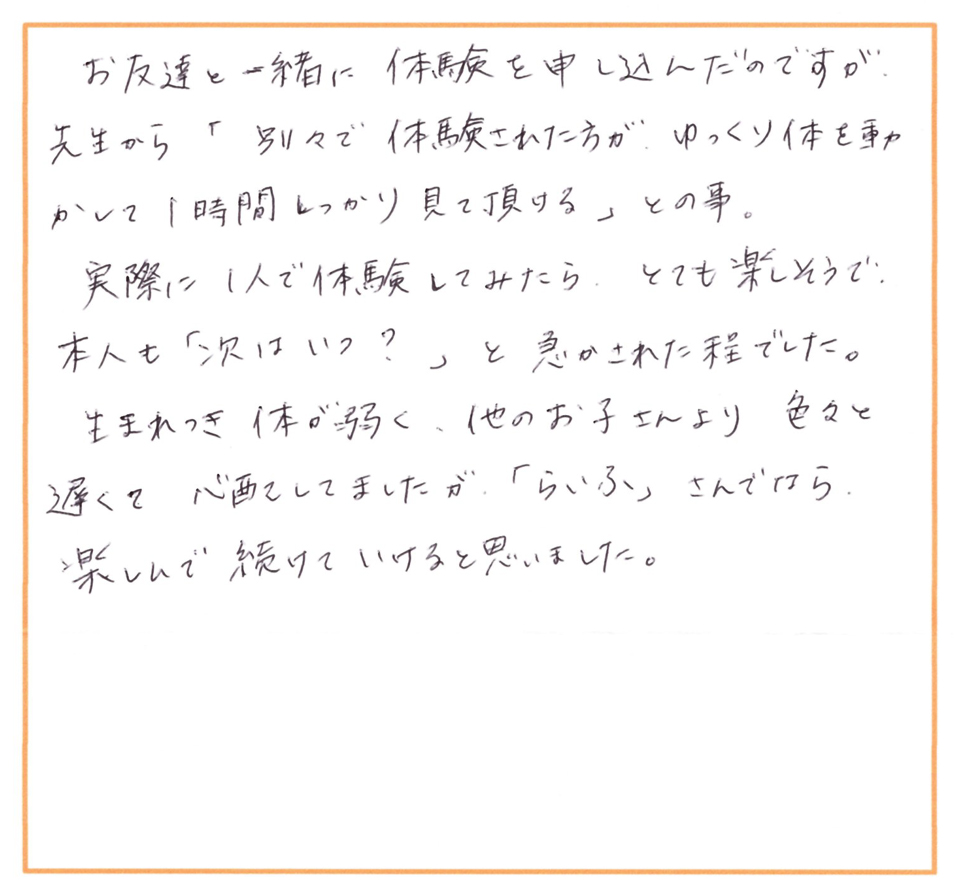 お友達と一緒に体験を申し込んだのですが、
先生から「別々で体験された方が、ゆっくり体を動
かして1時間しっかり見て頂ける」との事。
実際に1人で体験してみたら、とても楽しそうで、
本人も「次はいつ?」と急かされた程でした。
生まれつき体が弱く、他のお子さんより色々と
遅くて心配してましたが、「らいふ」さんでなら、
楽しんで続けていけると思いました。